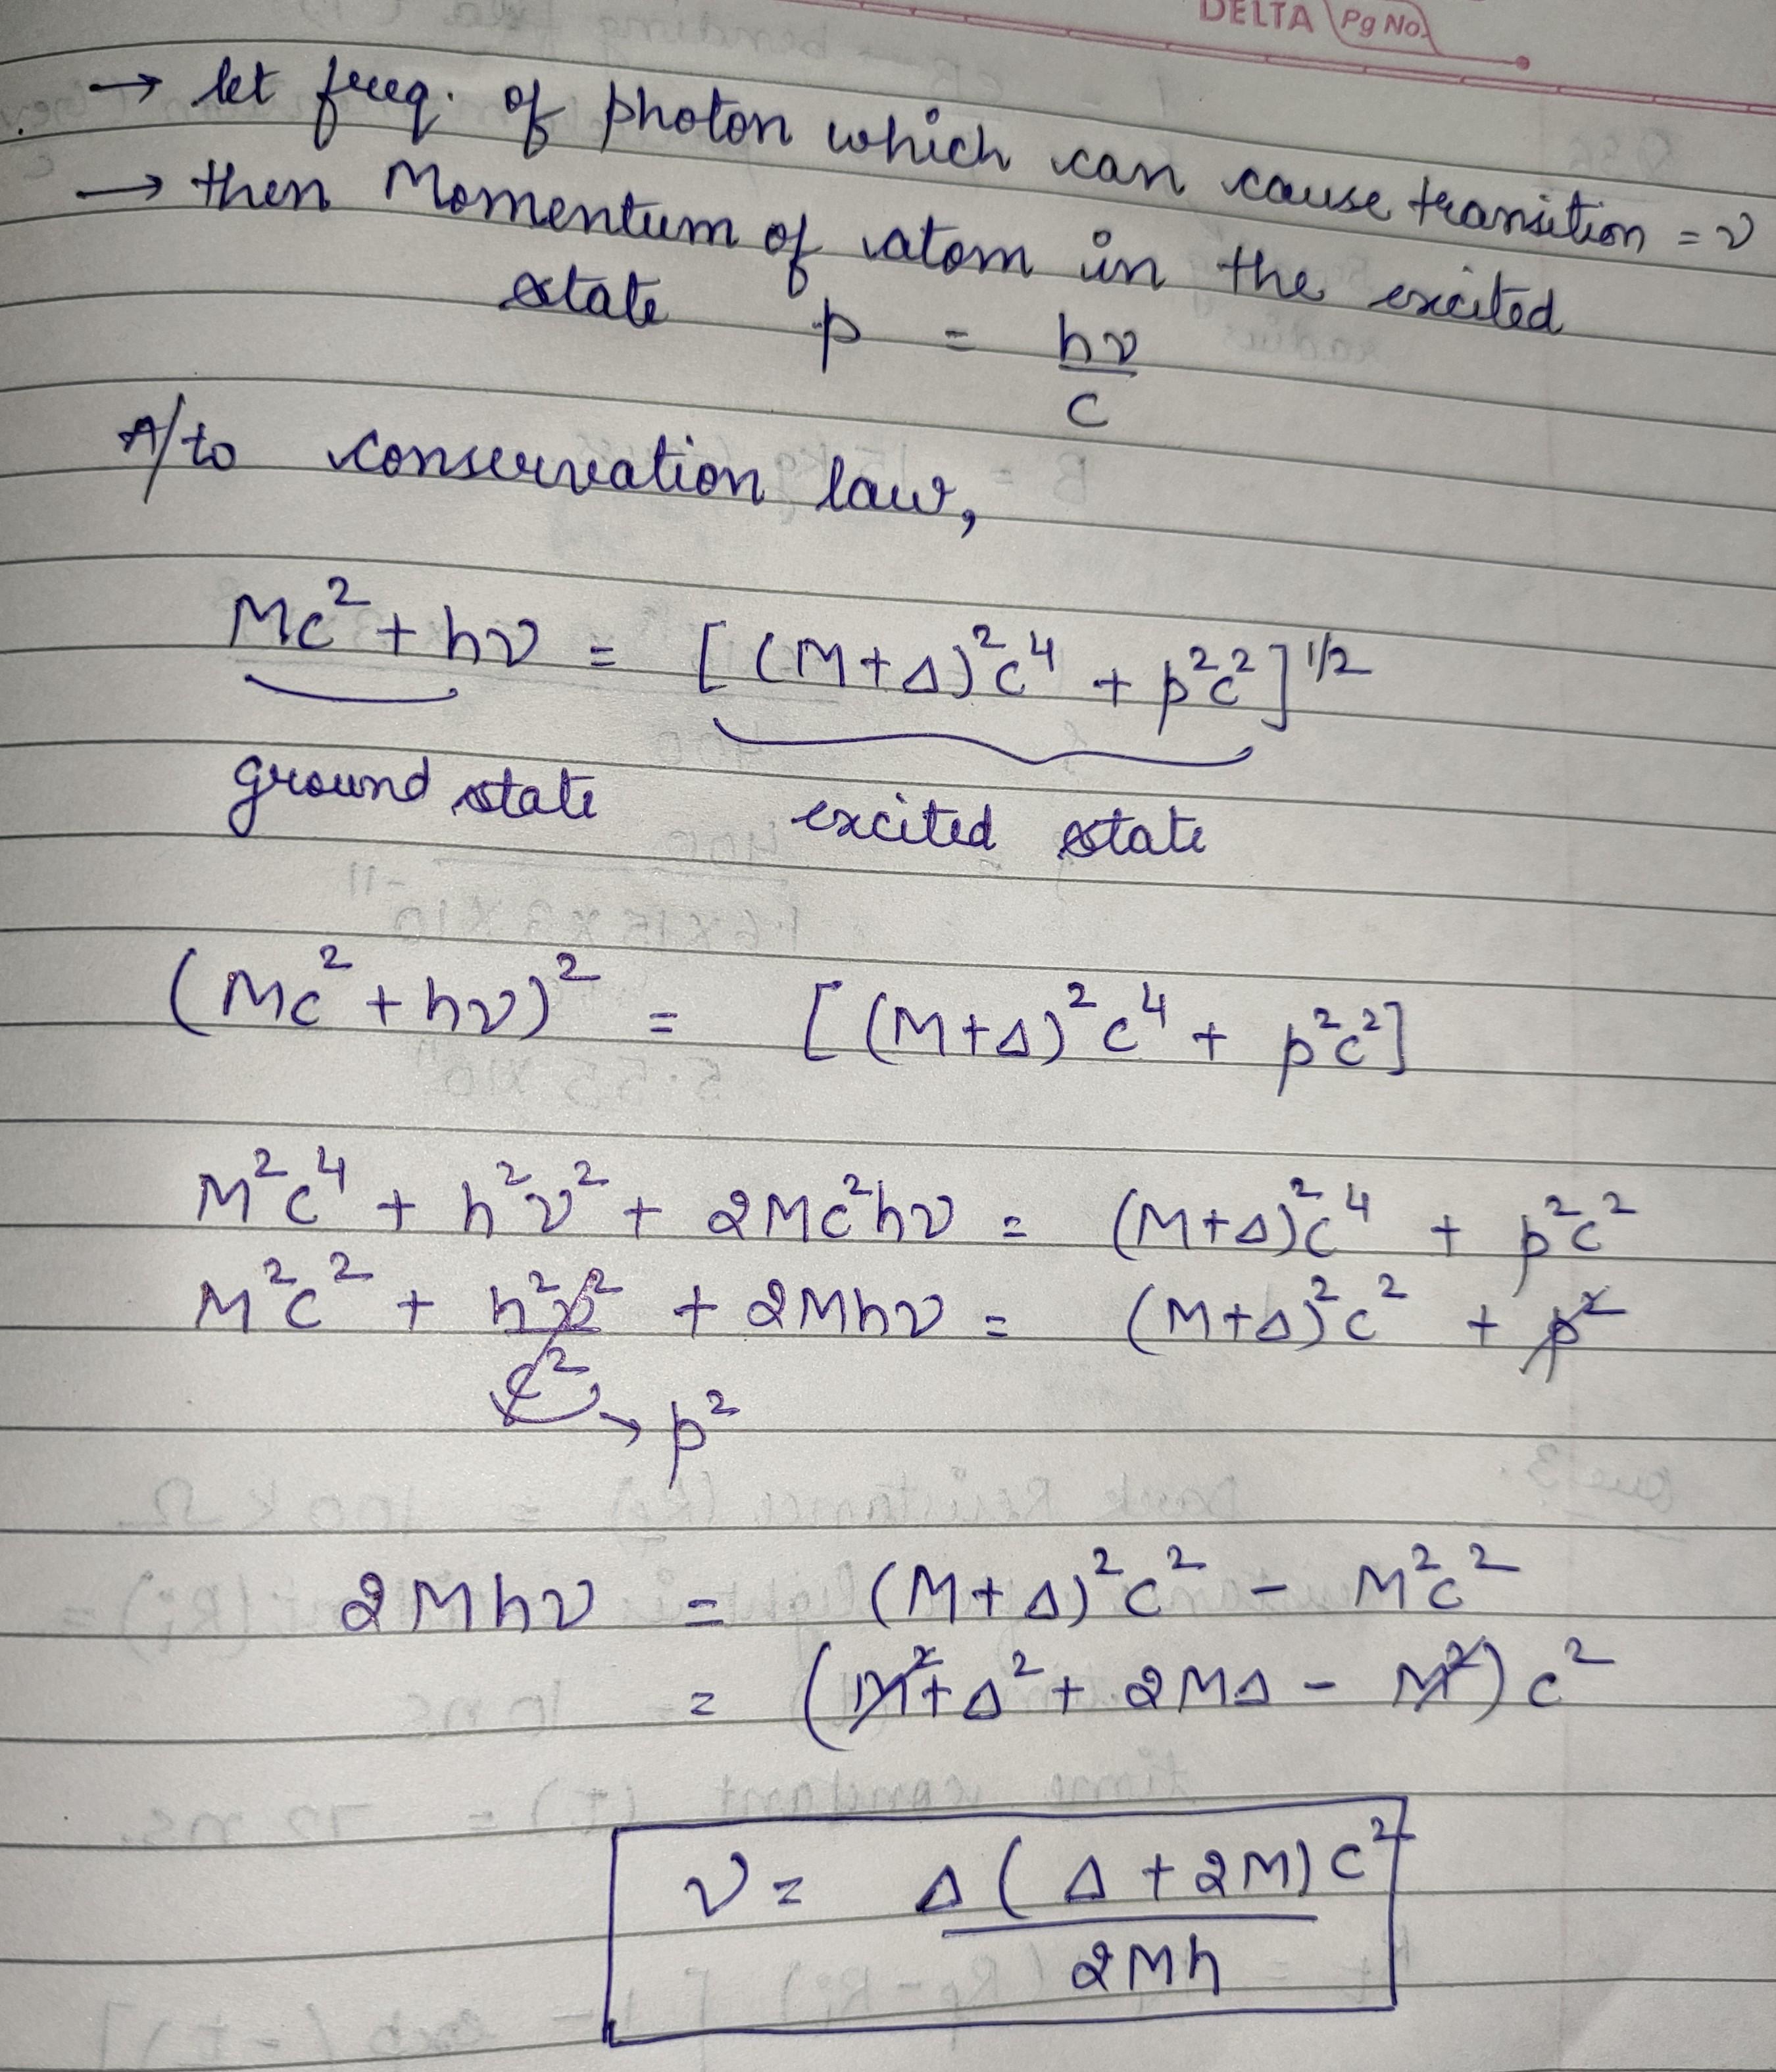 DELTA Pg No.
→ let freq. of photon which can cause transition = ν
→ then Momentum of atom in the excited
state p = hν/c
A/to conservation law,
Mc² + hν = [(M+Δ)²c⁴ + p²c²]^1/2
ground state excited state
(Mc² + hν)² = [(M+Δ)²c⁴ + p²c²]
M²c⁴ + h²ν² + 2Mc²hν = (M+Δ)²c⁴ + p²c²
M²c² + h²ν²/c² + 2Mhν = (M+Δ)²c² + p²
→ p²
2Mhν = (M+Δ)²c² - M²c²
= (M² + Δ² + 2MΔ - M²)c²
ν = Δ(Δ+2M)c²/2Mh